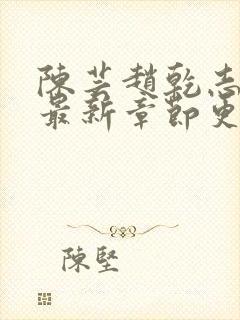 陳芸趙乾志
最新章節更
陳堅